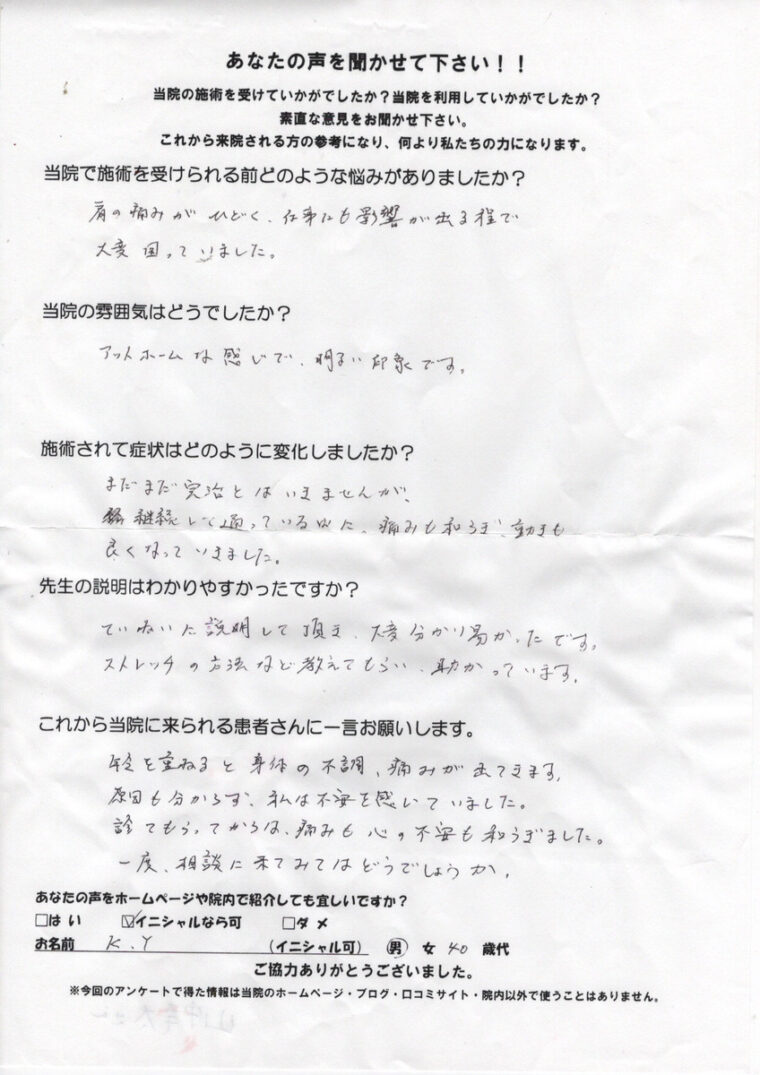 あなたの声を聞かせて下さい！！
当院の施術を受けていかがでしたか？当院を利用していかがでしたか？
素直な意見をお聞かせ下さい。
これから来院される方の参考になり、何より私たちの力になります。
当院で施術を受けられる前どのような悩みがありましたか？
肩の痛みがひどく、仕事にも影響が出る程で
大変困っていました。
当院の雰囲気はどうでしたか？
アットホームな感じで、明るい印象です。
施術されて症状はどのように変化しましたか？
まだまだ完治とはいきませんが、
継続して通っている内に、痛みも和らぎ、動きも
良くなっていきました。
先生の説明はわかりやすかったですか？
ていねいに説明して頂き、大変分かり易かったです。
ストレッチの方法など教えてもらい、助かっています。
これから当院に来られる患者さんに一言お願いします。
年令を重ねると身体の不調、痛みが出てきます。
原因も分からず、私は不安を感じていました。
診てもらってからは、痛みも心の不安も和らぎました。
一度、相談に来てみてはどうでしょうか。
あなたの声をホームページや院内で紹介しても宜しいですか？
□はい ☑イニシャルなら可 □ダメ
お名前 K.Y (イニシャル可) 男 女 40 歳代
ご協力ありがとうございました。
※今回のアンケートで得た情報は当院のホームページ・ブログ・口コミサイト・院内以外で使うことはありません。